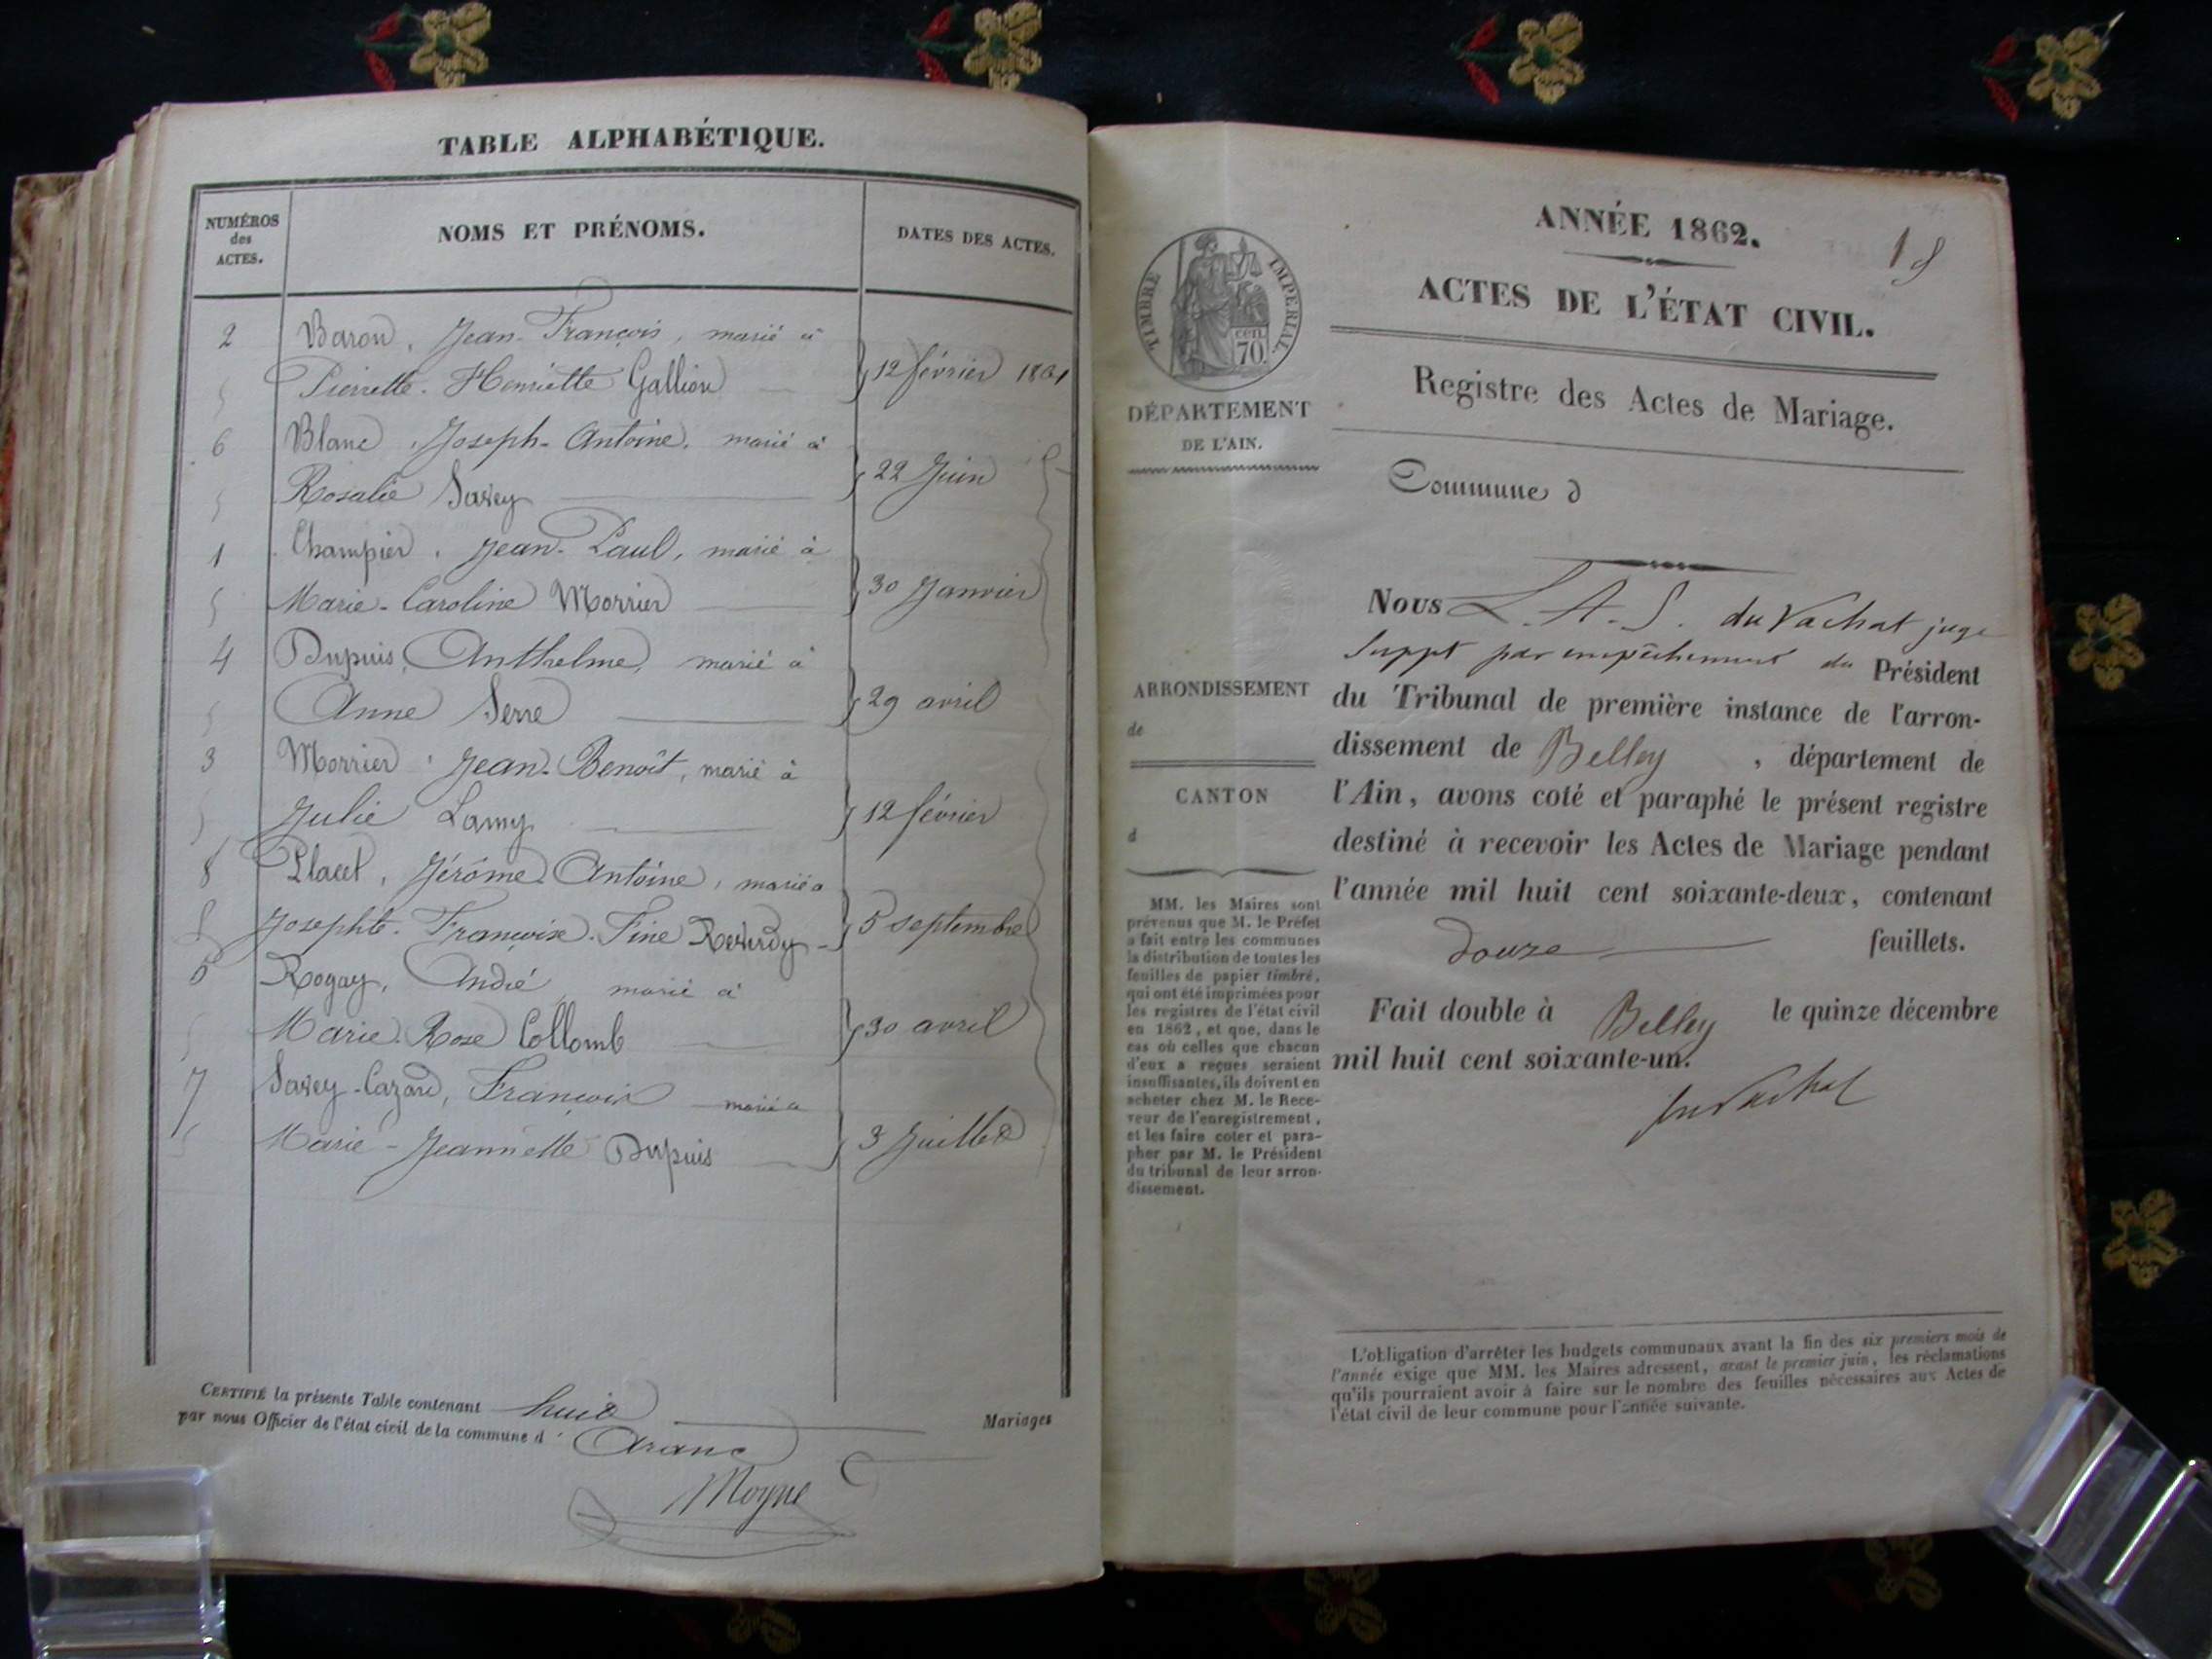 TABLE ALPHABÉTIQUE.
NUMÉROS
des
ACTES.
NOMS ET PRÉNOMS.
DATES DES ACTES.
2 Baron, Jean-François, marié à
Pierrette-Henriette Gallion 12 février 1861
6 Blanc, Joseph-Antoine, marié à
Rosalie Savey 22 Juin
1 Champier, Jean-Paul, marié à
Marie-Caroline Morrier 30 Janvier
4 Dupuis, Anthelme, marié à
Anne Serre 29 avril
3 Morrier, Jean-Benoît, marié à
Julie Lamy 12 février
8 Placet, Jérôme-Antoine, marié à
Josephte-Françoise-Fine Reverdy 5 septembre
5 Rogay, André marié à
Marie-Rose Collomb 30 avril
7 Savey-Cazard, François marié à
Marie-Jeannette Dupuis 3 Juillet
CERTIFIÉ la présente Table contenant huit Mariages
par nous Officier de l'état civil de la commune d'Aranc
Moyne
TIMBRE IMPÉRIAL
cen.
70.
DÉPARTEMENT
DE L'AIN.
ARRONDISSEMENT
de
CANTON
d
MM. les Maires sont
prévenus que M. le Préfet
a fait entre les communes
la distribution de toutes les
feuilles de papier timbré,
qui ont été imprimées pour
les registres de l'état civil
en 1862, et que, dans le
cas où celles que chacun
d'eux a reçues seraient
insuffisantes, ils doivent en
acheter chez M. le Rece-
veur de l'enregistrement,
et les faire coter et para-
pher par M. le Président
du tribunal de leur arron-
dissement.
ANNÉE 1862.
ACTES DE L'ÉTAT CIVIL.
Registre des Actes de Mariage.
Commune d
Nous L. A. S. du Vachat juge
Suppt par empêchement du Président
du Tribunal de première instance de l'arron-
dissement de Belley, département de
l'Ain, avons coté et paraphé le présent registre
destiné à recevoir les Actes de Mariage pendant
l'année mil huit cent soixante-deux, contenant
douze feuillets.
Fait double à Belley le quinze décembre
mil huit cent soixante-un.
du Vachat
L'obligation d'arrêter les budgets communaux avant la fin des six premiers mois de
l'année exige que MM. les Maires adressent, avant le premier juin, les réclamations
qu'ils pourraient avoir à faire sur le nombre des feuilles nécessaires aux Actes de
l'état civil de leur commune pour l'année suivante.